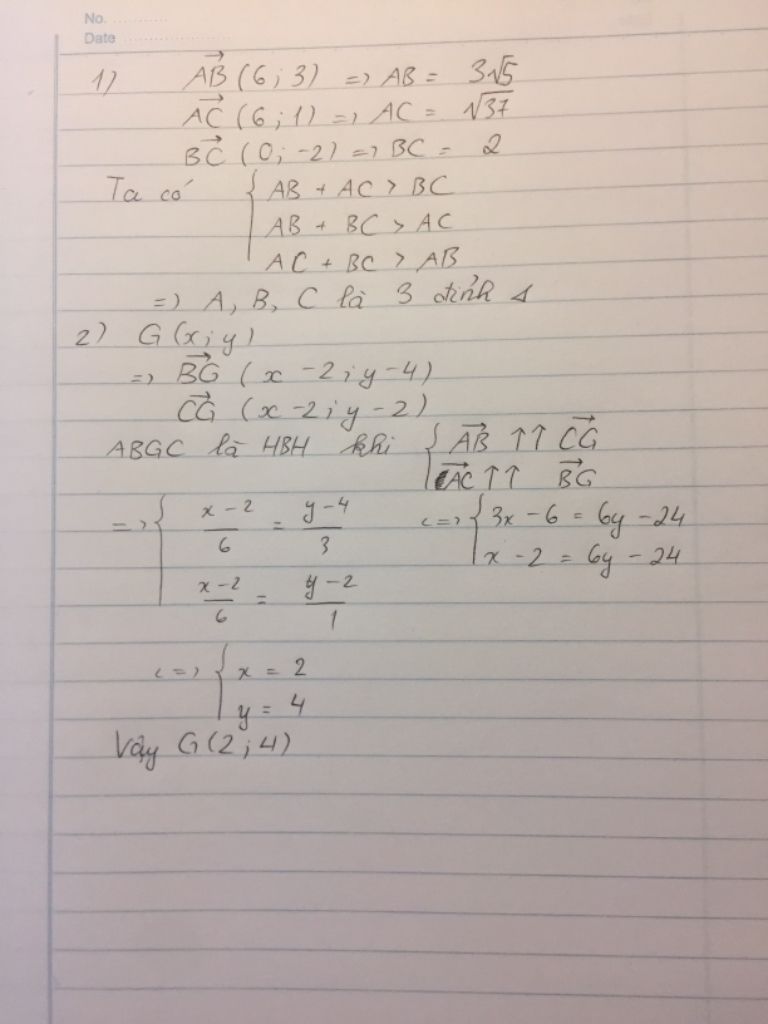 No. ............
Date ........................
1) $\overrightarrow{AB}$ (6 ; 3) => AB = 3√5
$\overrightarrow{AC}$ (6 ; 1) => AC = √37
$\overrightarrow{BC}$ (0 ; -2) => BC = 2
Ta có { AB + AC > BC
AB + BC > AC
AC + BC > AB
=> A, B, C là 3 đỉnh Δ
2) G (x ; y)
=> $\overrightarrow{BG}$ ( x - 2 ; y - 4)
$\overrightarrow{CG}$ (x - 2 ; y - 2)
ABGC là HBH khi { $\overrightarrow{AB}$ ↑↑ $\overrightarrow{CG}$
$\overrightarrow{AC}$ ↑↑ $\overrightarrow{BG}$
=> { $\frac{x-2}{6} = \frac{y-4}{3}$ <=> { 3x - 6 = 6y - 24
$\frac{x-2}{6} = \frac{y-2}{1}$ x - 2 = 6y - 24
<=> { x = 2
y = 4
Vậy G(2 ; 4)